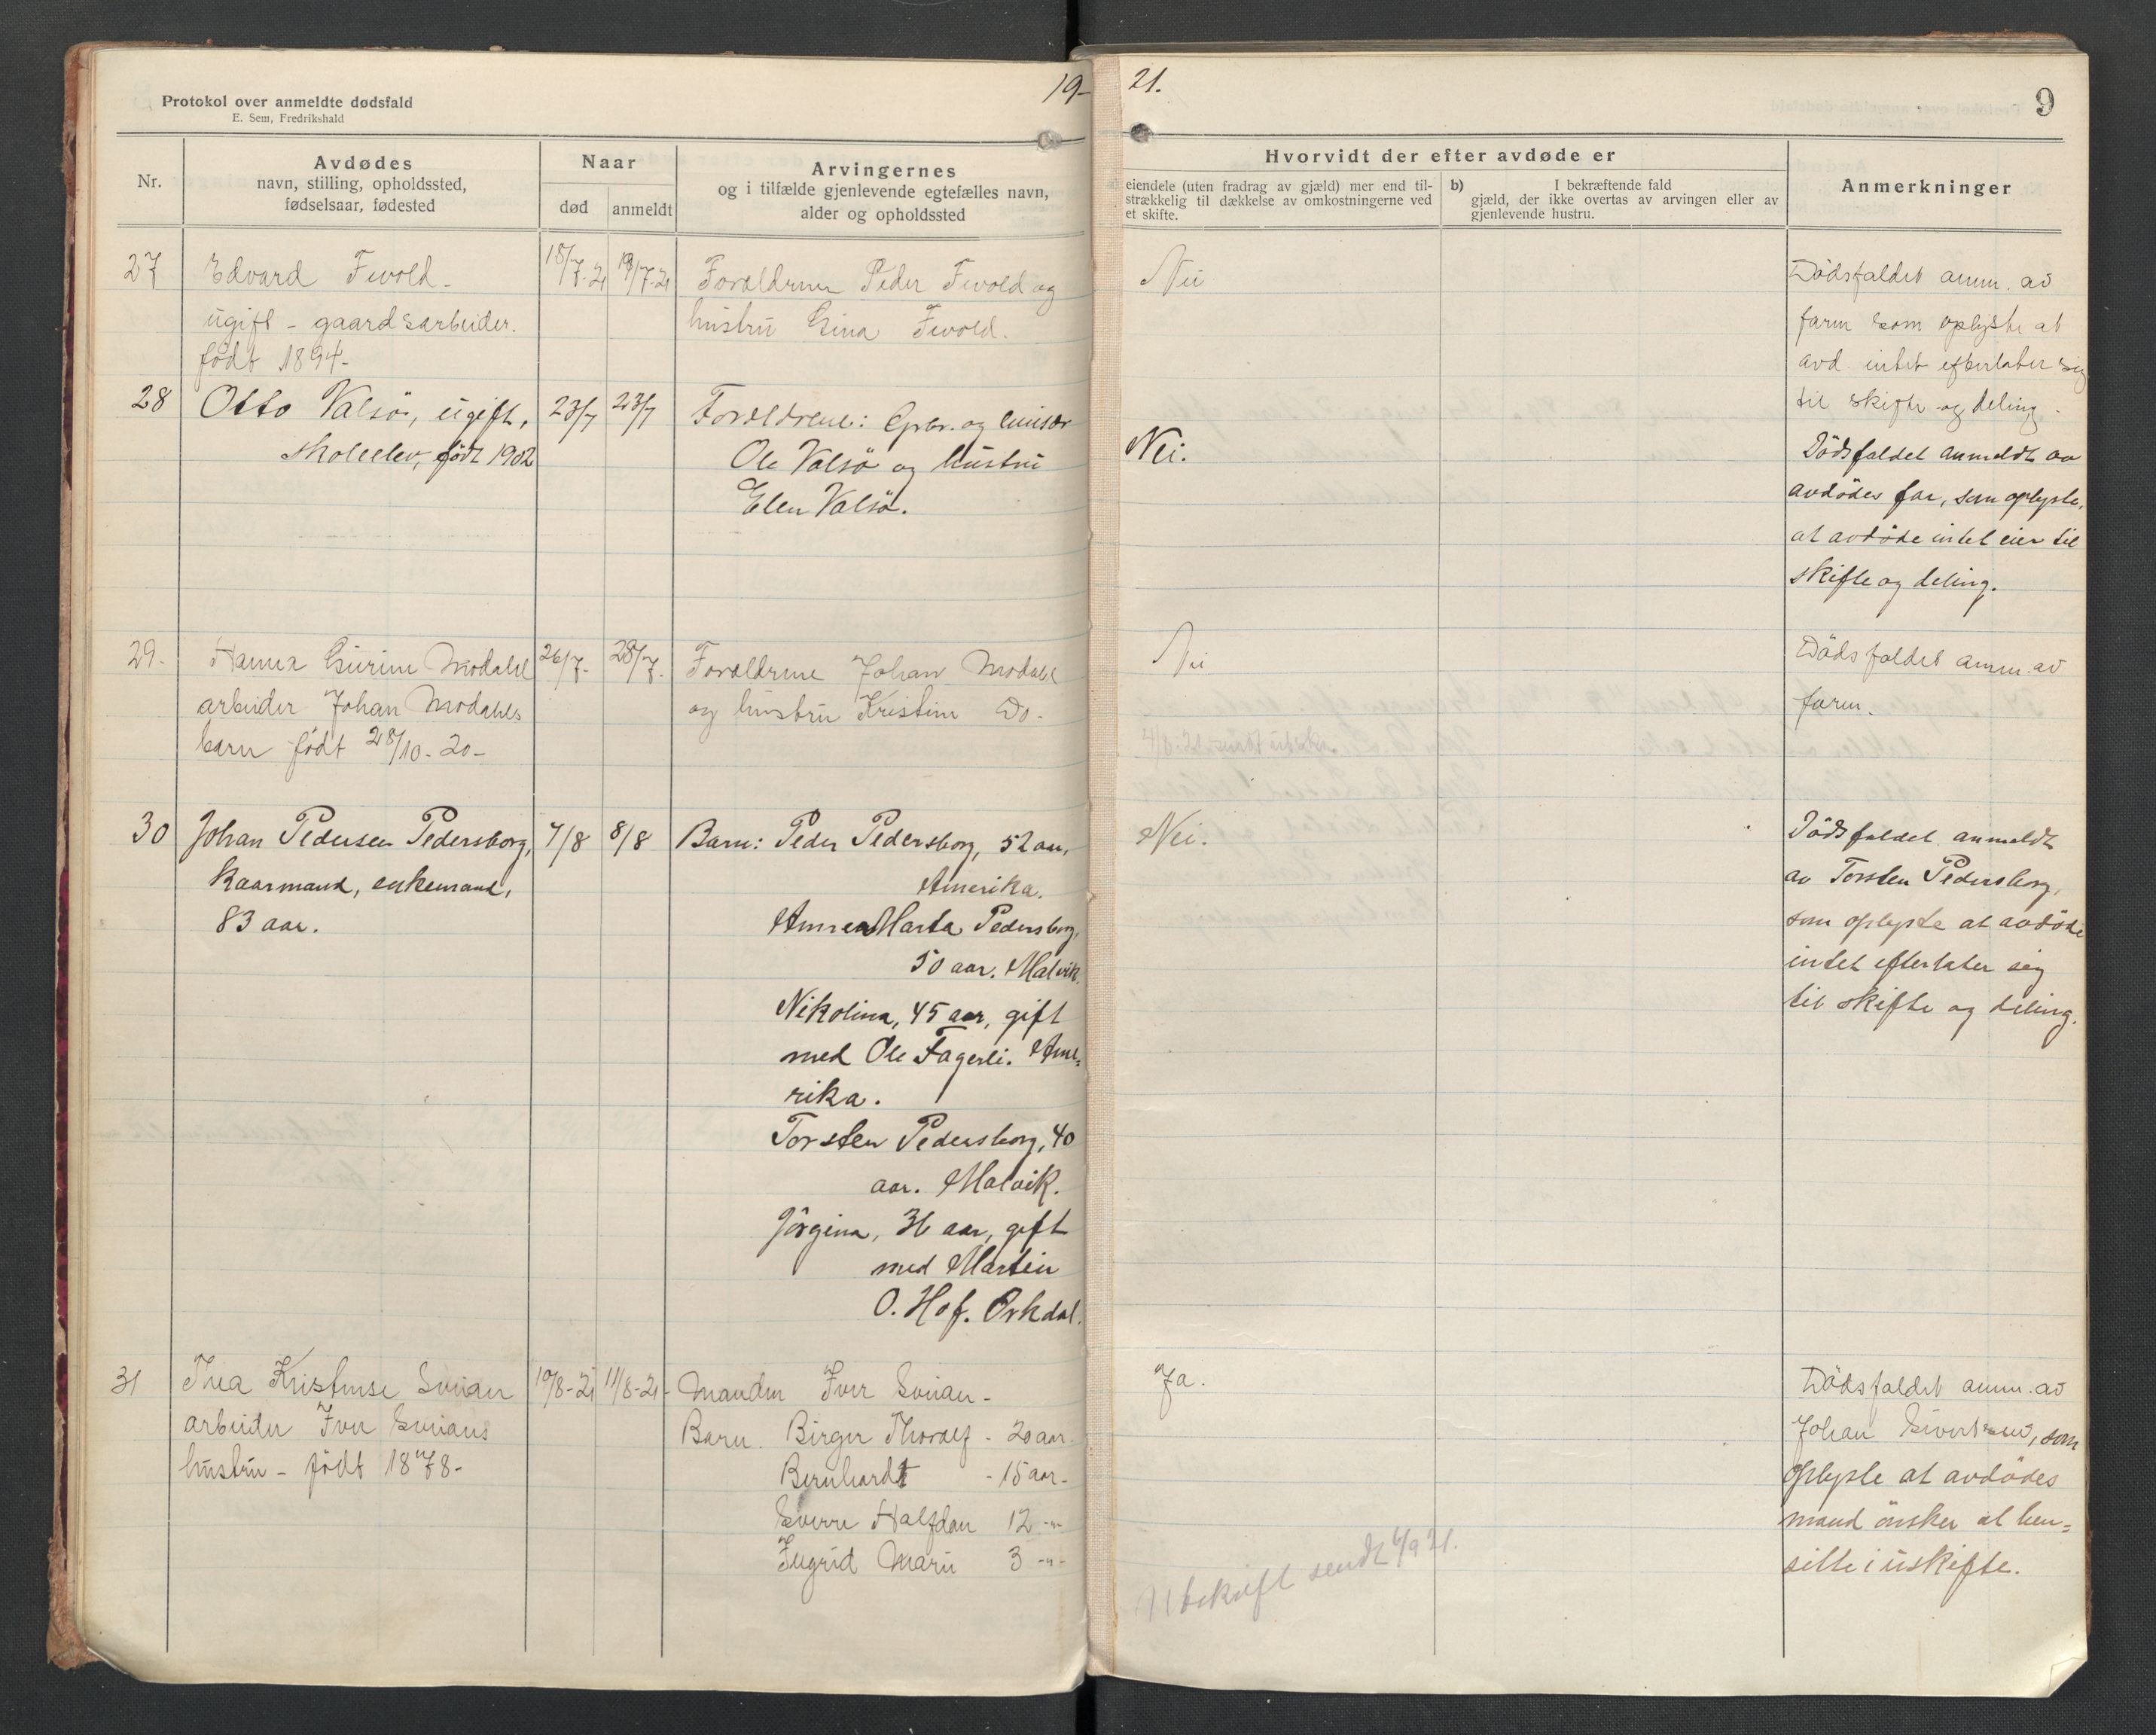 Protokol over anmeldte dødsfald
E. Sem, Fredrikshald
19-
Nr.
Avdødes
navn, stilling, opholdssted,
fødselsaar, fødested
Naar
død
anmeldt
Arvingernes
og i tilfælde gjenlevende egtefælles navn,
alder og opholdssted
27
Edvard Fevold -
ugift - gaardsarbeider.
födt 1894-
18/7-21
19/7-21
Forældrene Peder Fevold og
hustru Gina Fevold.
28
Otto Valsö, ugift,
skoleelev, födt 1902
23/7
23/7
Forældrene: Gprbr. og
Ole Valsö og hustru
Elen Valsö.
29.
Hanna Modahl
arbeider Johan Modahls
barn födt 28/10-20-
26/7-
28/7-
Forældrene Johan Modahl
og hustru Kristine Do-
30
Johan Pedersen Pedersborg,
Kaarmand, enkemand,
83 aar.
7/8
8/8
Barn: Peder Pedersborg, 52 aar,
Amerika.
Marta Pedersborg,
50 aar. Malvik.
Nikolina, 45 aar, gift
med Ole Fagerli. Ame=
rika.
Torsten Pedersborg, 40
aar. Malvik.
Jörgina, 36 aar, gift
med Martin
O. Hof. Orkdal.
31
Thea Kristense
arbeider Iver
hustru - födt 1878-
10/8-21
11/8-21-
Manden Iver
Barn. Birger Thoralf - 20 aar.
Bernhardt - 15 aar-
Sverre Halfdan 12 -"-
Ingrid Marie 3 -"-
21.
9
Hvorvidt der efter avdøde er
eiendele (uten fradrag av gjæld) mer end til-
strækkelig til dækkelse av omkostningerne ved
et skifte.
b)
I bekræftende fald
gjæld, der ikke overtas av arvingen eller av
gjenlevende hustru.
Anmerkninger
Nei
Dödsfaldet anm. av
faren som oplyste at
avd. intet efterlater sig
til skifte og deling -
Nei.
Dödsfaldet anmeldt av
avdödes far, som oplyste,
at avdöde intet eier til
skifte og deling.
Nei
Dödsfaldet anm. av
faren.
Nei.
Dödsfaldet anmeldt
av Torsten Pedersborg,
som oplyste at avdöde
intet efterlater sig
til skifte og deling.
Ja.
Dödsfaldet anm. av
Johan Sivertsen, som
oplyste at avdödes
mand önsker at hen=
sitte i uskifte.
Utskrift sendt 6/9 21.